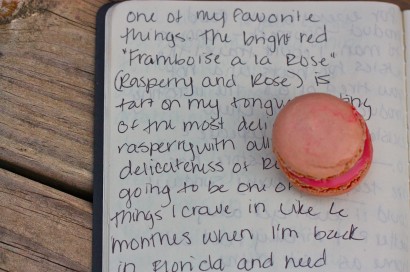 one of my favorite
things. The bright red
"Framboise a la Rose"
(Rasperry and Rose) is
tart on my
of the most
rasperry with all
delicateness of
going to be one
things I crave in like
months when I'm back
in Florida and need